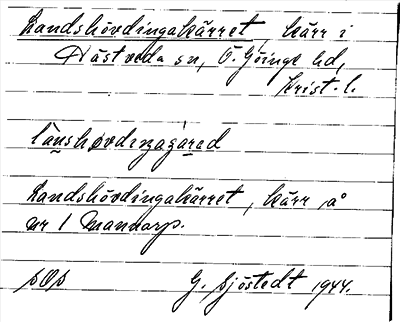 Landshövdingakärret, kärr i
Nästveda sn, Ö. Göinge hd,
Krist. l.
länshøvdɩŋagàrəd
Landshövdingakärret, kärr på
nr 1 Mannarp.
SOS
G. Sjöstedt 1944.